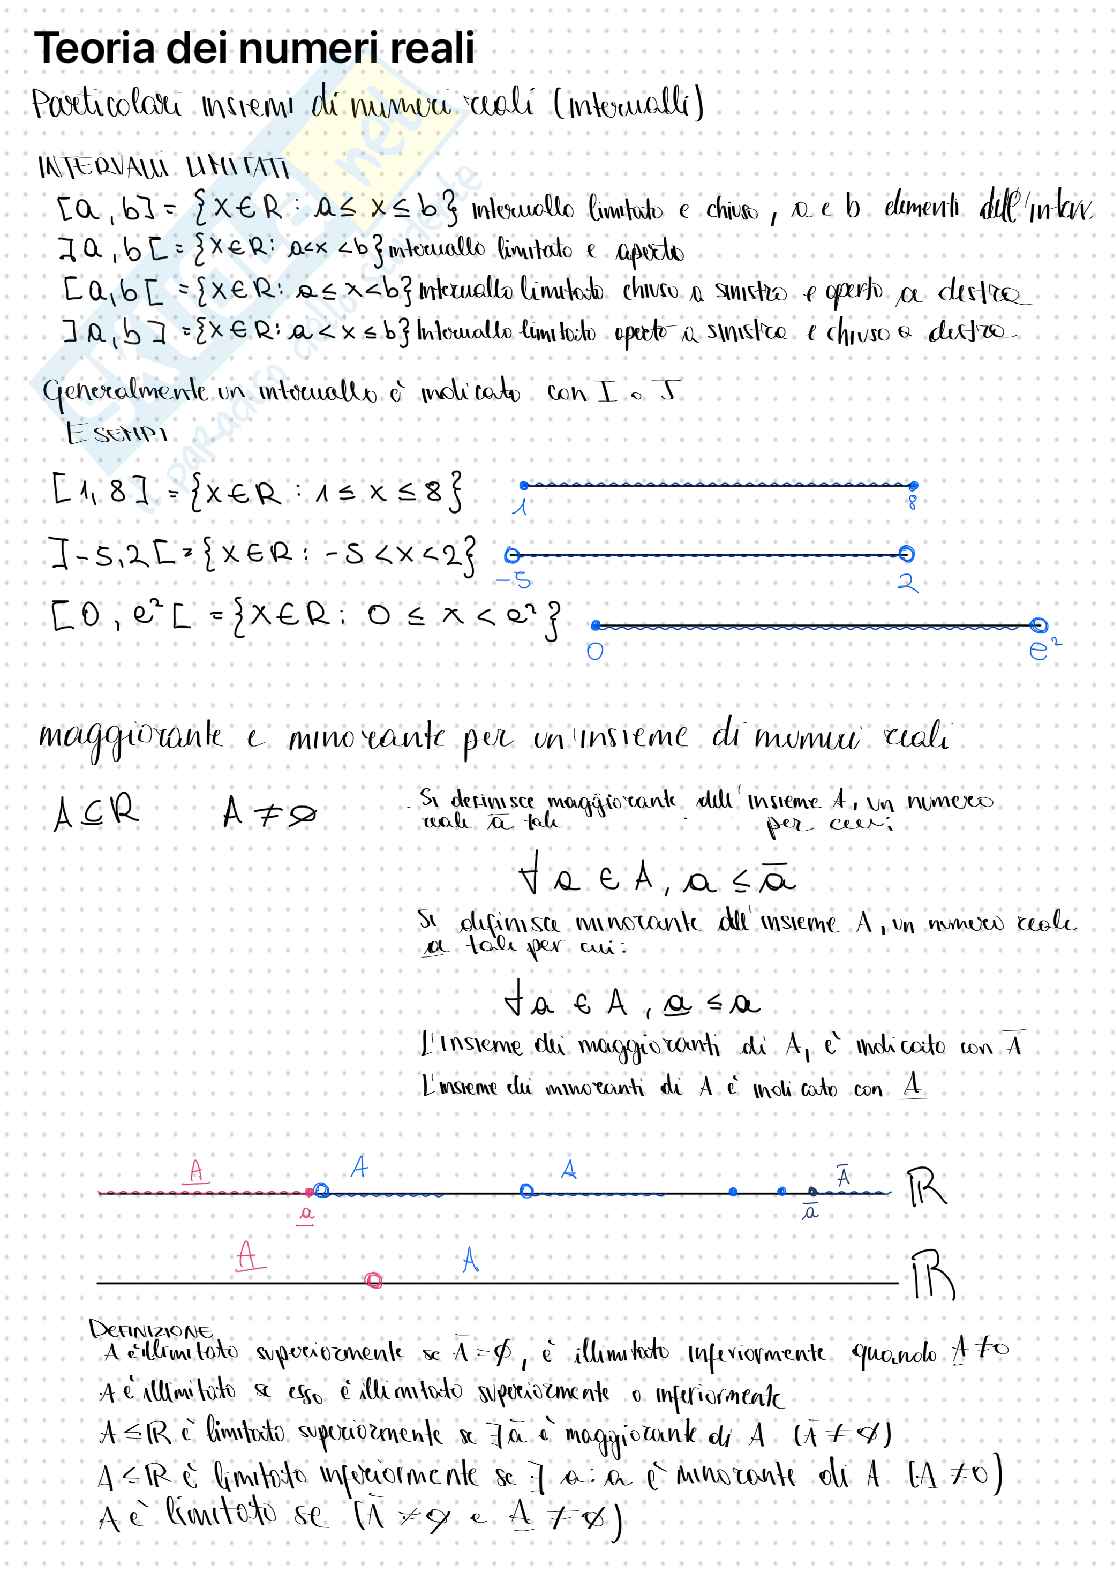 Teoria dei numeri reali
Particolari insiemi di numeri reali (intervalli)
INTERVALLI LIMITATI
[a, b] = {x∈R : a ≤ x ≤ b} intervallo limitato e chiuso, a e b elementi dell'interv.
]a, b[ = {x∈R: a<x<b} intervallo limitato e aperto
[a,b[ = {x∈R: a ≤ x<b} intervallo limitato chiuso a sinistra e aperto a destra
]a, b] = {x∈R: a < x ≤ b} intervallo limitato aperto a sinistra e chiuso a destra.
Generalmente un intervallo è indicato con I o J
ESEMPI
[1, 8] = {x∈R : 1 ≤ x ≤ 8}
1 8
]-5,2[ = {x∈R: -5 <x<2}
-5 2
[0, e² [ = {x∈R: 0 ≤ x < e²}
0 e²
maggiorante e minorante per un'insieme di numeri reali
A⊆R A ≠ ∅
Si definisce maggiorante dell'insieme A, un numero
reale a̅ tale per cui:
∀ a ∈ A, a ≤ a̅
Si definisce minorante dell'insieme A, un numero reale
a̲ tale per cui:
∀ a ∈ A, a̲ ≤ a
L'insieme dei maggioranti di A, è indicato con A̅
L'insieme dei minoranti di A è indicato con A̲
A̲ A A A̅
ℝ
a̲ a̅
A̲ A
ℝ
DEFINIZIONE
A è illimitato superiormente se A̅ = ∅, è illimitato inferiormente quando A̲ ≠ 0
A è illimitato se esso è illimitato superiormente o inferiormente
A ≤ ℝ è limitato superiormente se ∃ a̅ è maggiorante di A (A̅ ≠ ∅)
A ≤ ℝ è limitato inferiormente se ∃ a : a è minorante di A (A̲ ≠ 0)
A è limitato se (A̅ ≠ ∅ e A̲ ≠ ∅)